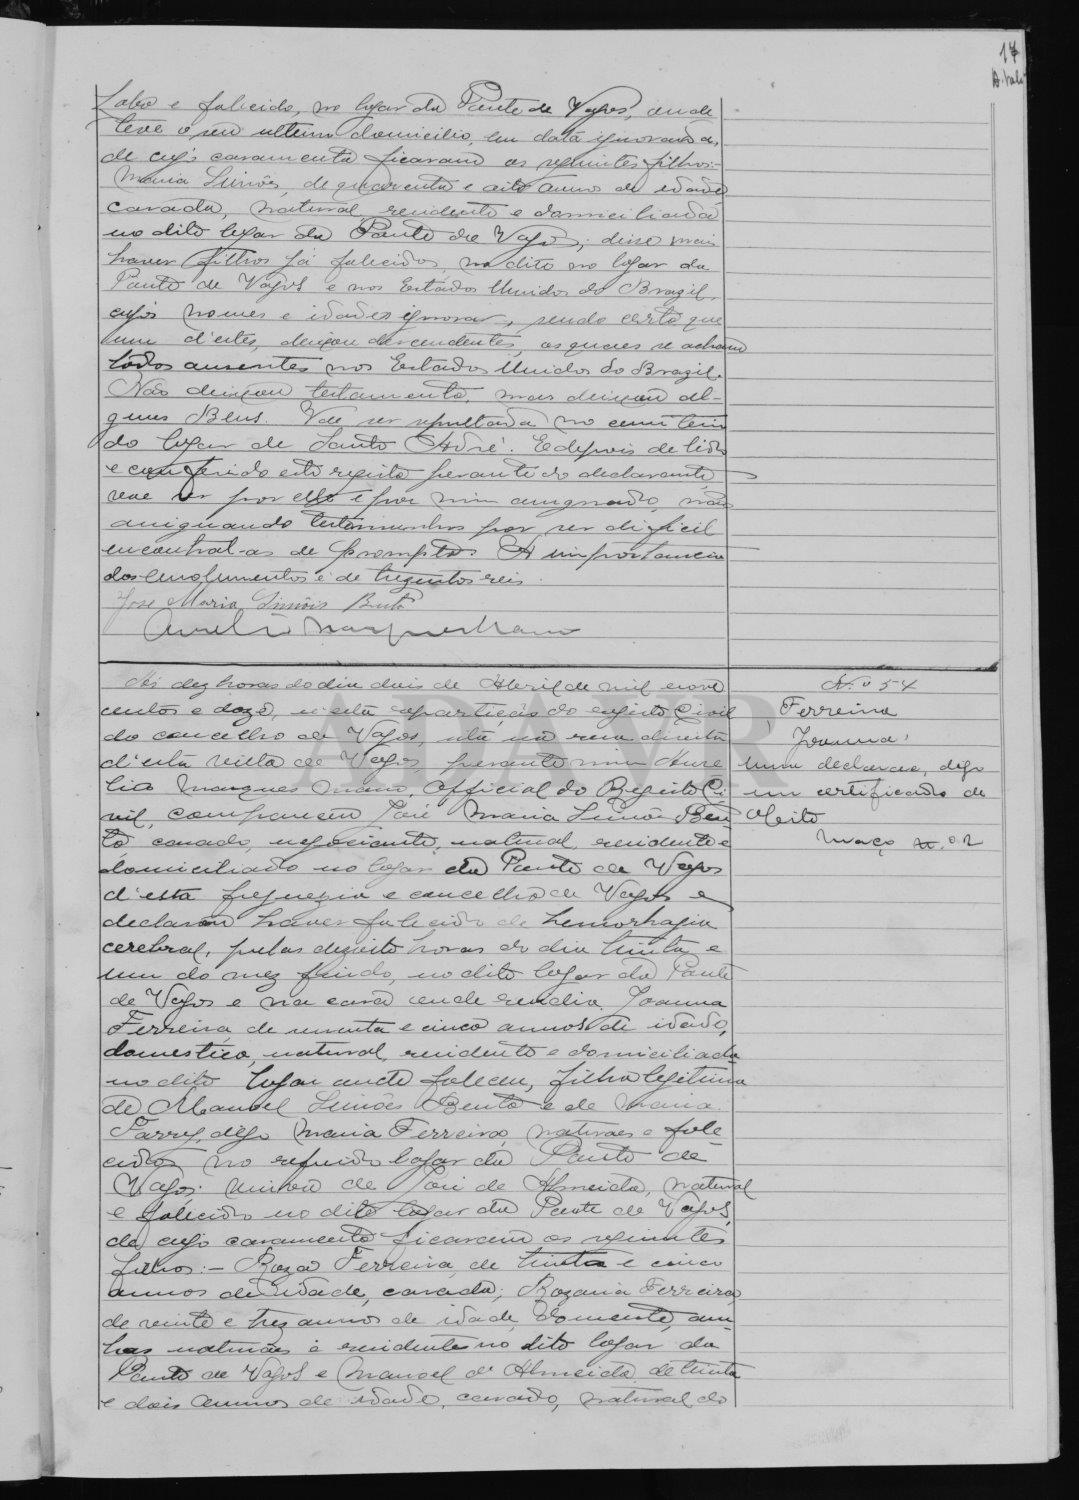 17
Lobo e falecido, no logar da Ponte de Vagos, onde
teve o seu ultimo domicilio, em data ignorada,
de cujo casamento ficaram os seguintes filhos:-
Maria Simões, de quarenta e oito annos de idade
casada, natural, residente e domiciliada
no dito logar da Ponte de Vagos; disse mais
haver filhos já falecidos, no dito no logar da
Ponte de Vagos e nos Estados Unidos do Brazil,
cujos nomes e idades ignora, sendo certo que
um d'estes, deixou descendentes, os quaes se acham
todos ausentes nos Estados Unidos do Brazil.
Não deixou testamento, mas deixou al-
guns Bens. Vae ser sepultada no cemiterio
do logar de Santo André. E depois de lido
e conferido este registo perante do declarante,
vae ser por elle e por mim assignado, não
assignando testemunhas por ser dificil
encontral-as de prompto. A importancia
dos emolumentos é de trezentos reis.
José Maria Simões Bento
Aurelio Marques Mano
Ás dez horas do dia dois de Abril de mil nove
centos e doze, n'esta repartição do registo Civil
do concelho de Vagos, sita na rua direita
d'esta villa de Vagos, perante mim Aure
lio Marques Mano, Official do Registo Ci
vil, compareceu José Maria Simões Ben
to casado, negociante, natural, residente e
domiciliado no logar da Ponte de Vagos
d'esta freguezia e concelho de Vagos e
declarou haver falecido de hemorhagia
cerebral, pelas dezoito horas do dia trinta e
um do mez findo, no dito logar da Ponte
de Vagos e na casa onde residia, Joanna
Ferreira, de sessenta e cinco annos de idade,
domestica, natural, residente e domiciliada
no dito logar onde faleceu, filha legitima
de Manoel Simões Bento e de Maria
digo Maria Ferreira, naturaes e fale-
cidos no referido logar da Ponte de
Vagos; viuva de José de Almeida, natural
e falecido no dito logar da Ponte de Vagos,
de cujo casamento ficaram os seguintes
filhos:- Roza Ferreira, de trinta e cinco
annos de idade, casada; Rozaria Ferreira,
de vinte e trez annos de idade, am-
bas naturaes e residentes no dito logar da
Ponte de Vagos e Manoel d'Almeida, de trinta
e dois annos de idade, casado, natural do
N.º 54
Ferreira
Joanna
uma declarac, digo
um certificado de
Obito
Maço n.º 2
ADAVR